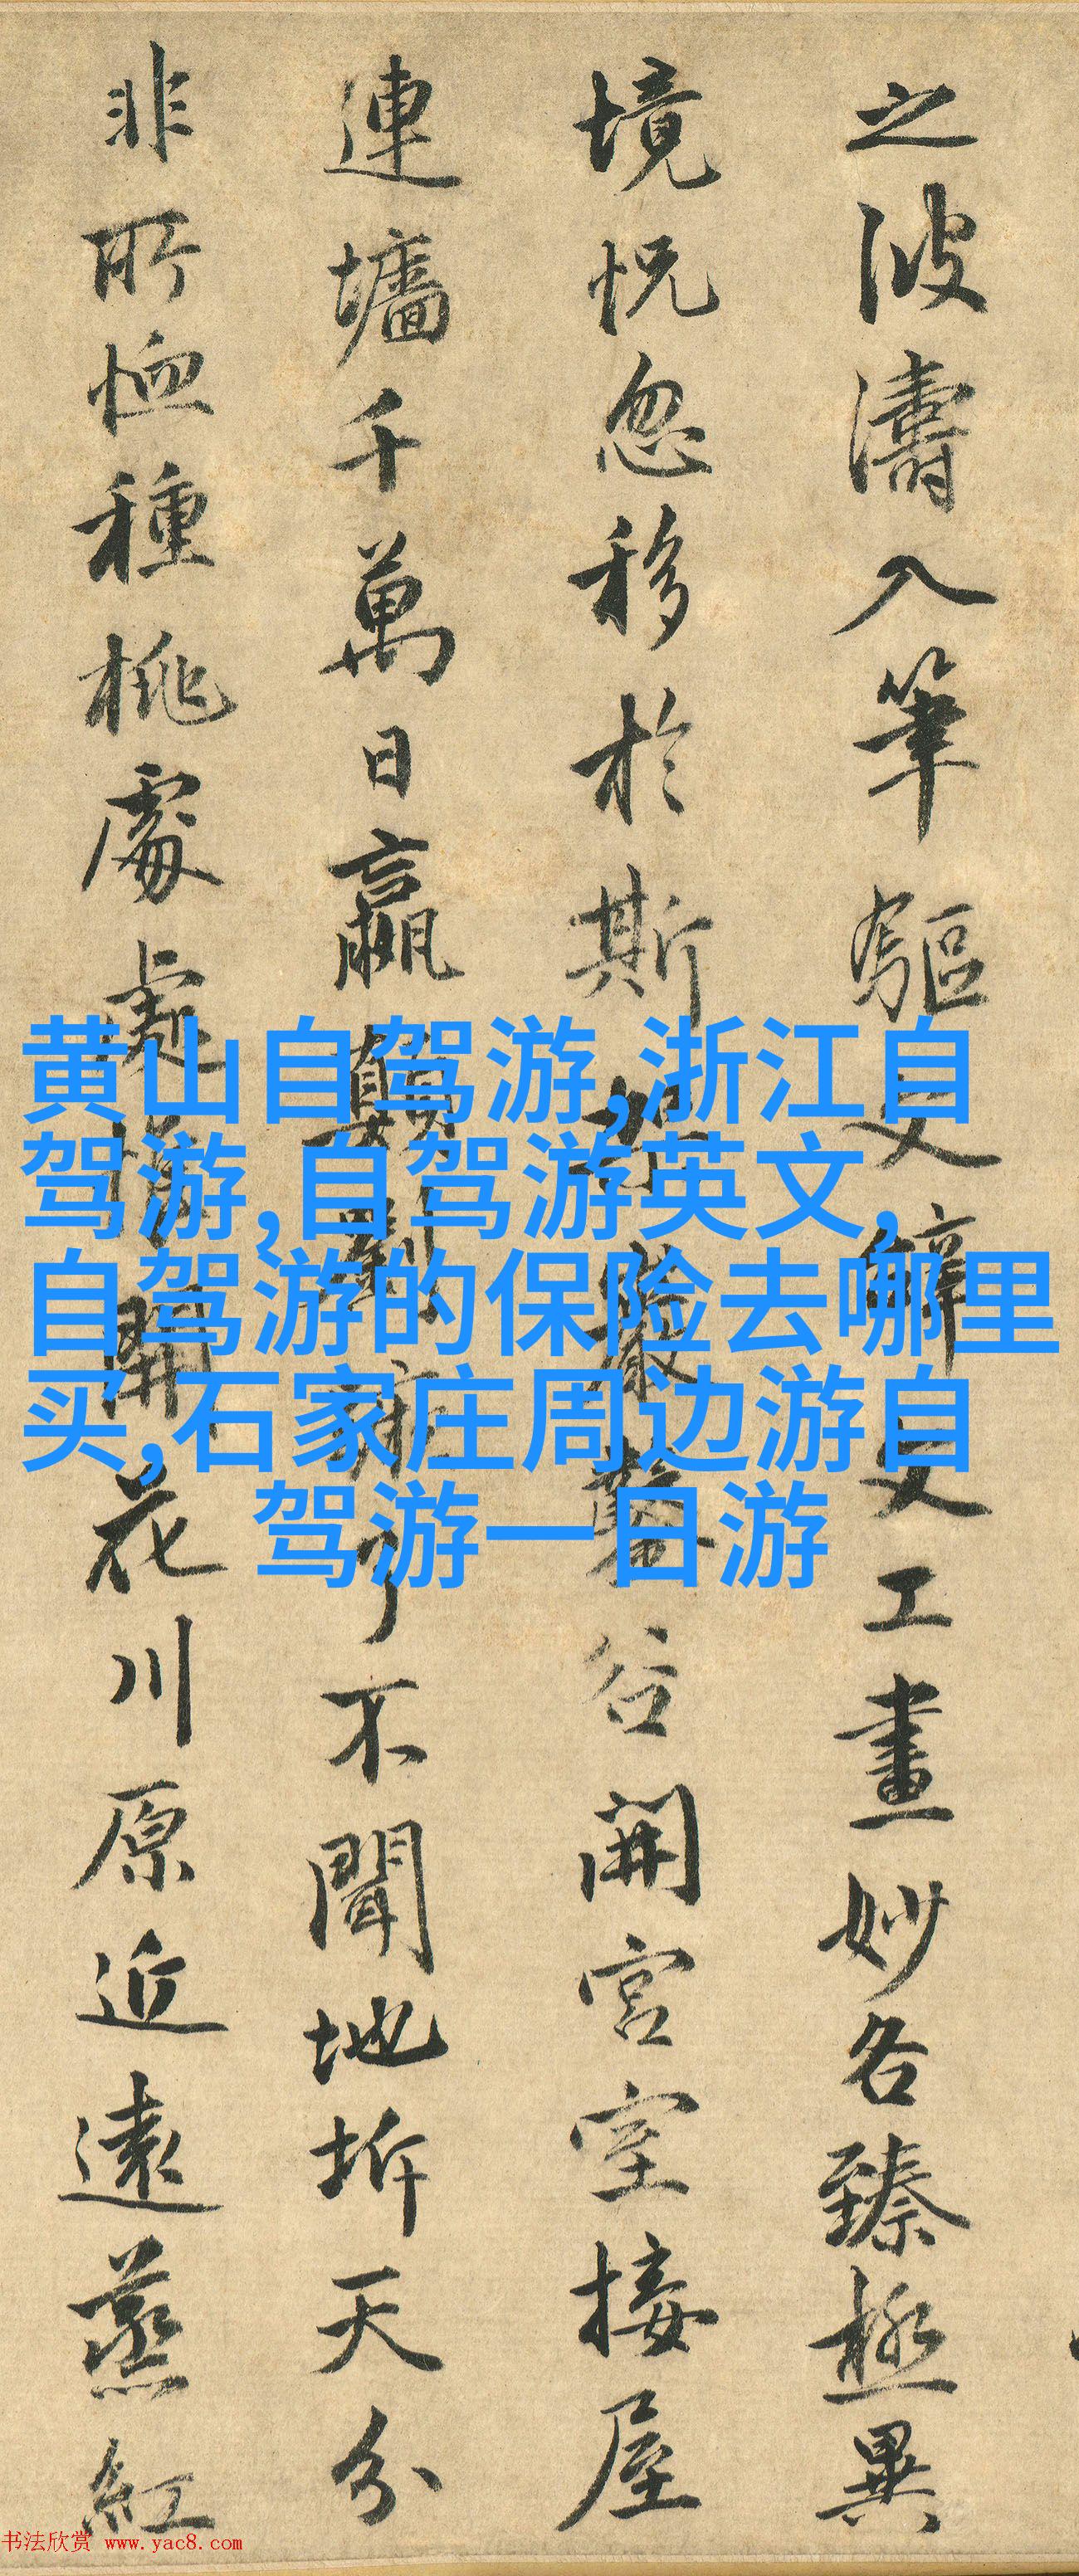 之波濤入筆驅文辭文工畫妙各臻極異
境恍忽移於斯架巖鑿谷開宮室接屋
連墻千萬日嬴顛劉蹶了不聞地坼天分
非所恤種桃處處惟開花川原近遠蒸紅
黄山自驾游,浙江自
驾游,自驾游英文,
自驾游的保险去哪里
买,石家庄周边游自
驾游一日游
书法欣赏 www.yac8.com